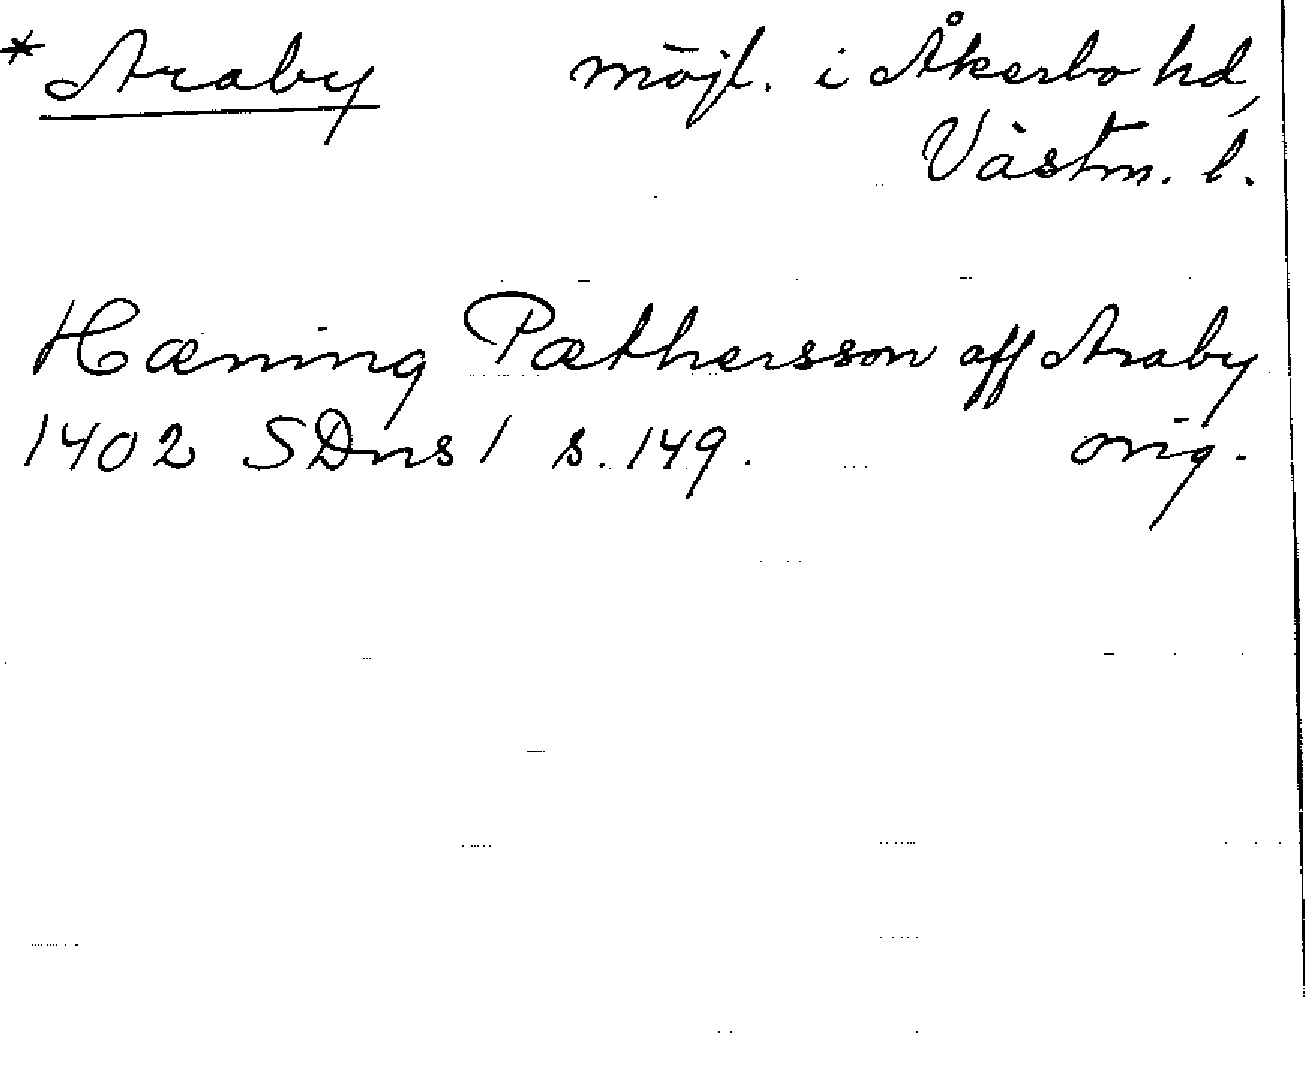 *Araby möjl. i Åkerbo hd,
Västm. l.
Hæning Pæthersson aff Araby
1402 SDns 1 s. 149. orig.